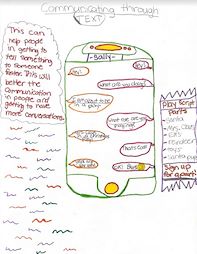 Communicating through
TEXT
This can
help people
in getting to
tell something
to someone
faster. This will
better the
Communication
in people and
getting to have
more conversations.
-Sally-
hey!
what are you doing?
what are you
playing?
That's cool!
OK! Bye
Play Script
parts
-Santa
-Mrs. Claus
-Elves
-reindeer
-toys
-Santa pup
Sign up
for a part!